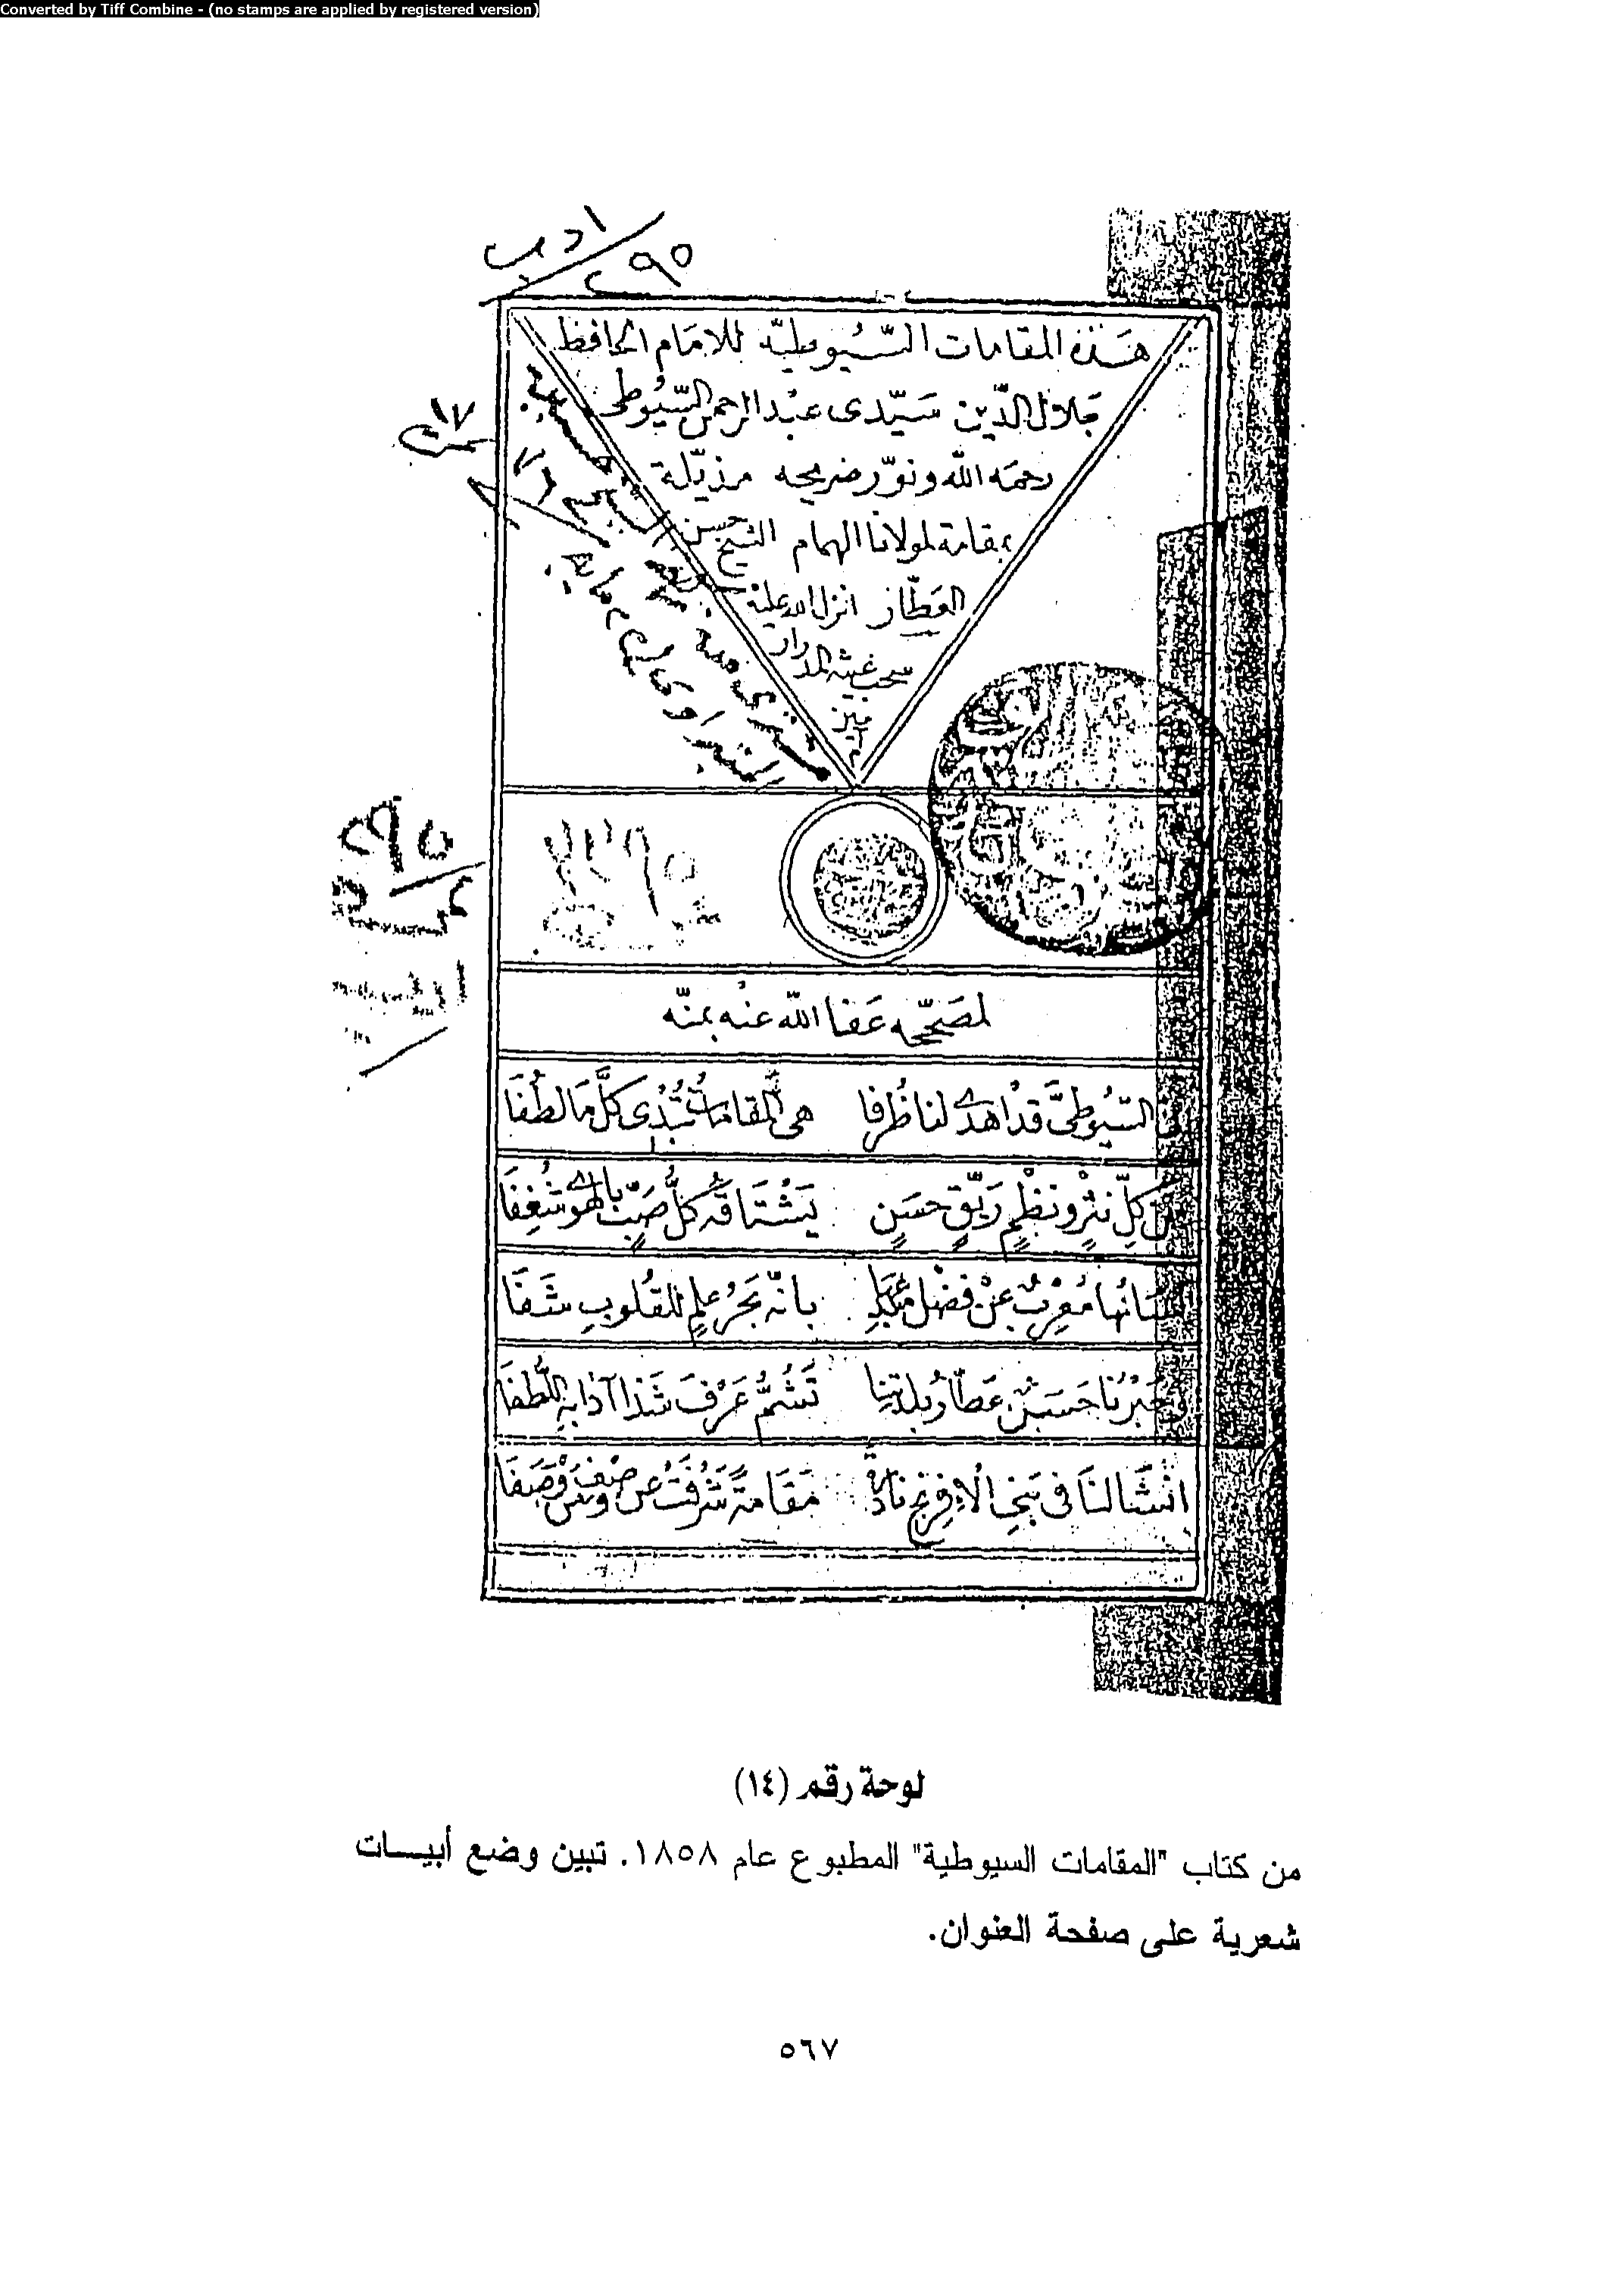 Converted by Tiff Combine - (no stamps are applied by registered version)
ادب
٢٩٥
هَذه المقامات السّيُوطيّة للامَام الحافظ
جَلال الدّين سَيّدى عبْد الرحمن السّيُوطى
رحمَه الله ونوّر ضريحه مذيّلة
بمقامة لمولانا الهمام الشيخ حسن
العَطّار انزل الله عليْه
سحب غيثه المدرار
آمين
لمصَحّحِه عَفا الله عنْه بمَنّه
السّيُوطىَّ قدْ اهدى لنا ظُرفا هى المقاماتُ تُبْدى كلَّ مَا لطُفَا
كلِّ نثْرٍ ونظْمٍ رَيّقٍ حسَنٍ يَشْتَاقُه كلُّ صَبٍّ بالهوى شُغِفَا
مُعْرِبٌ عنْ فضْل بانّه بَحْرُ علمٍ للقُلوبِ شَفَا
وحَبْرُنا حَسَنٌ عَطّارُ بلدتِنا تَشُمُّ عَرْفَ شَذا آدَابِه اللُّطفَا
انْشَا لنَا فى بَنِى الْافِرنْجِ نادرةً مَقَامَةً شَرُفَتْ عن وصْفِ مَنْ وَصَفَا
لوحة رقم (١٤)
من كتاب "المقامات السيوطية" المطبوع عام ١٨٥٨. تبين وضع أبيـــات
شعرية على صفحة العنوان.
٥٦٧